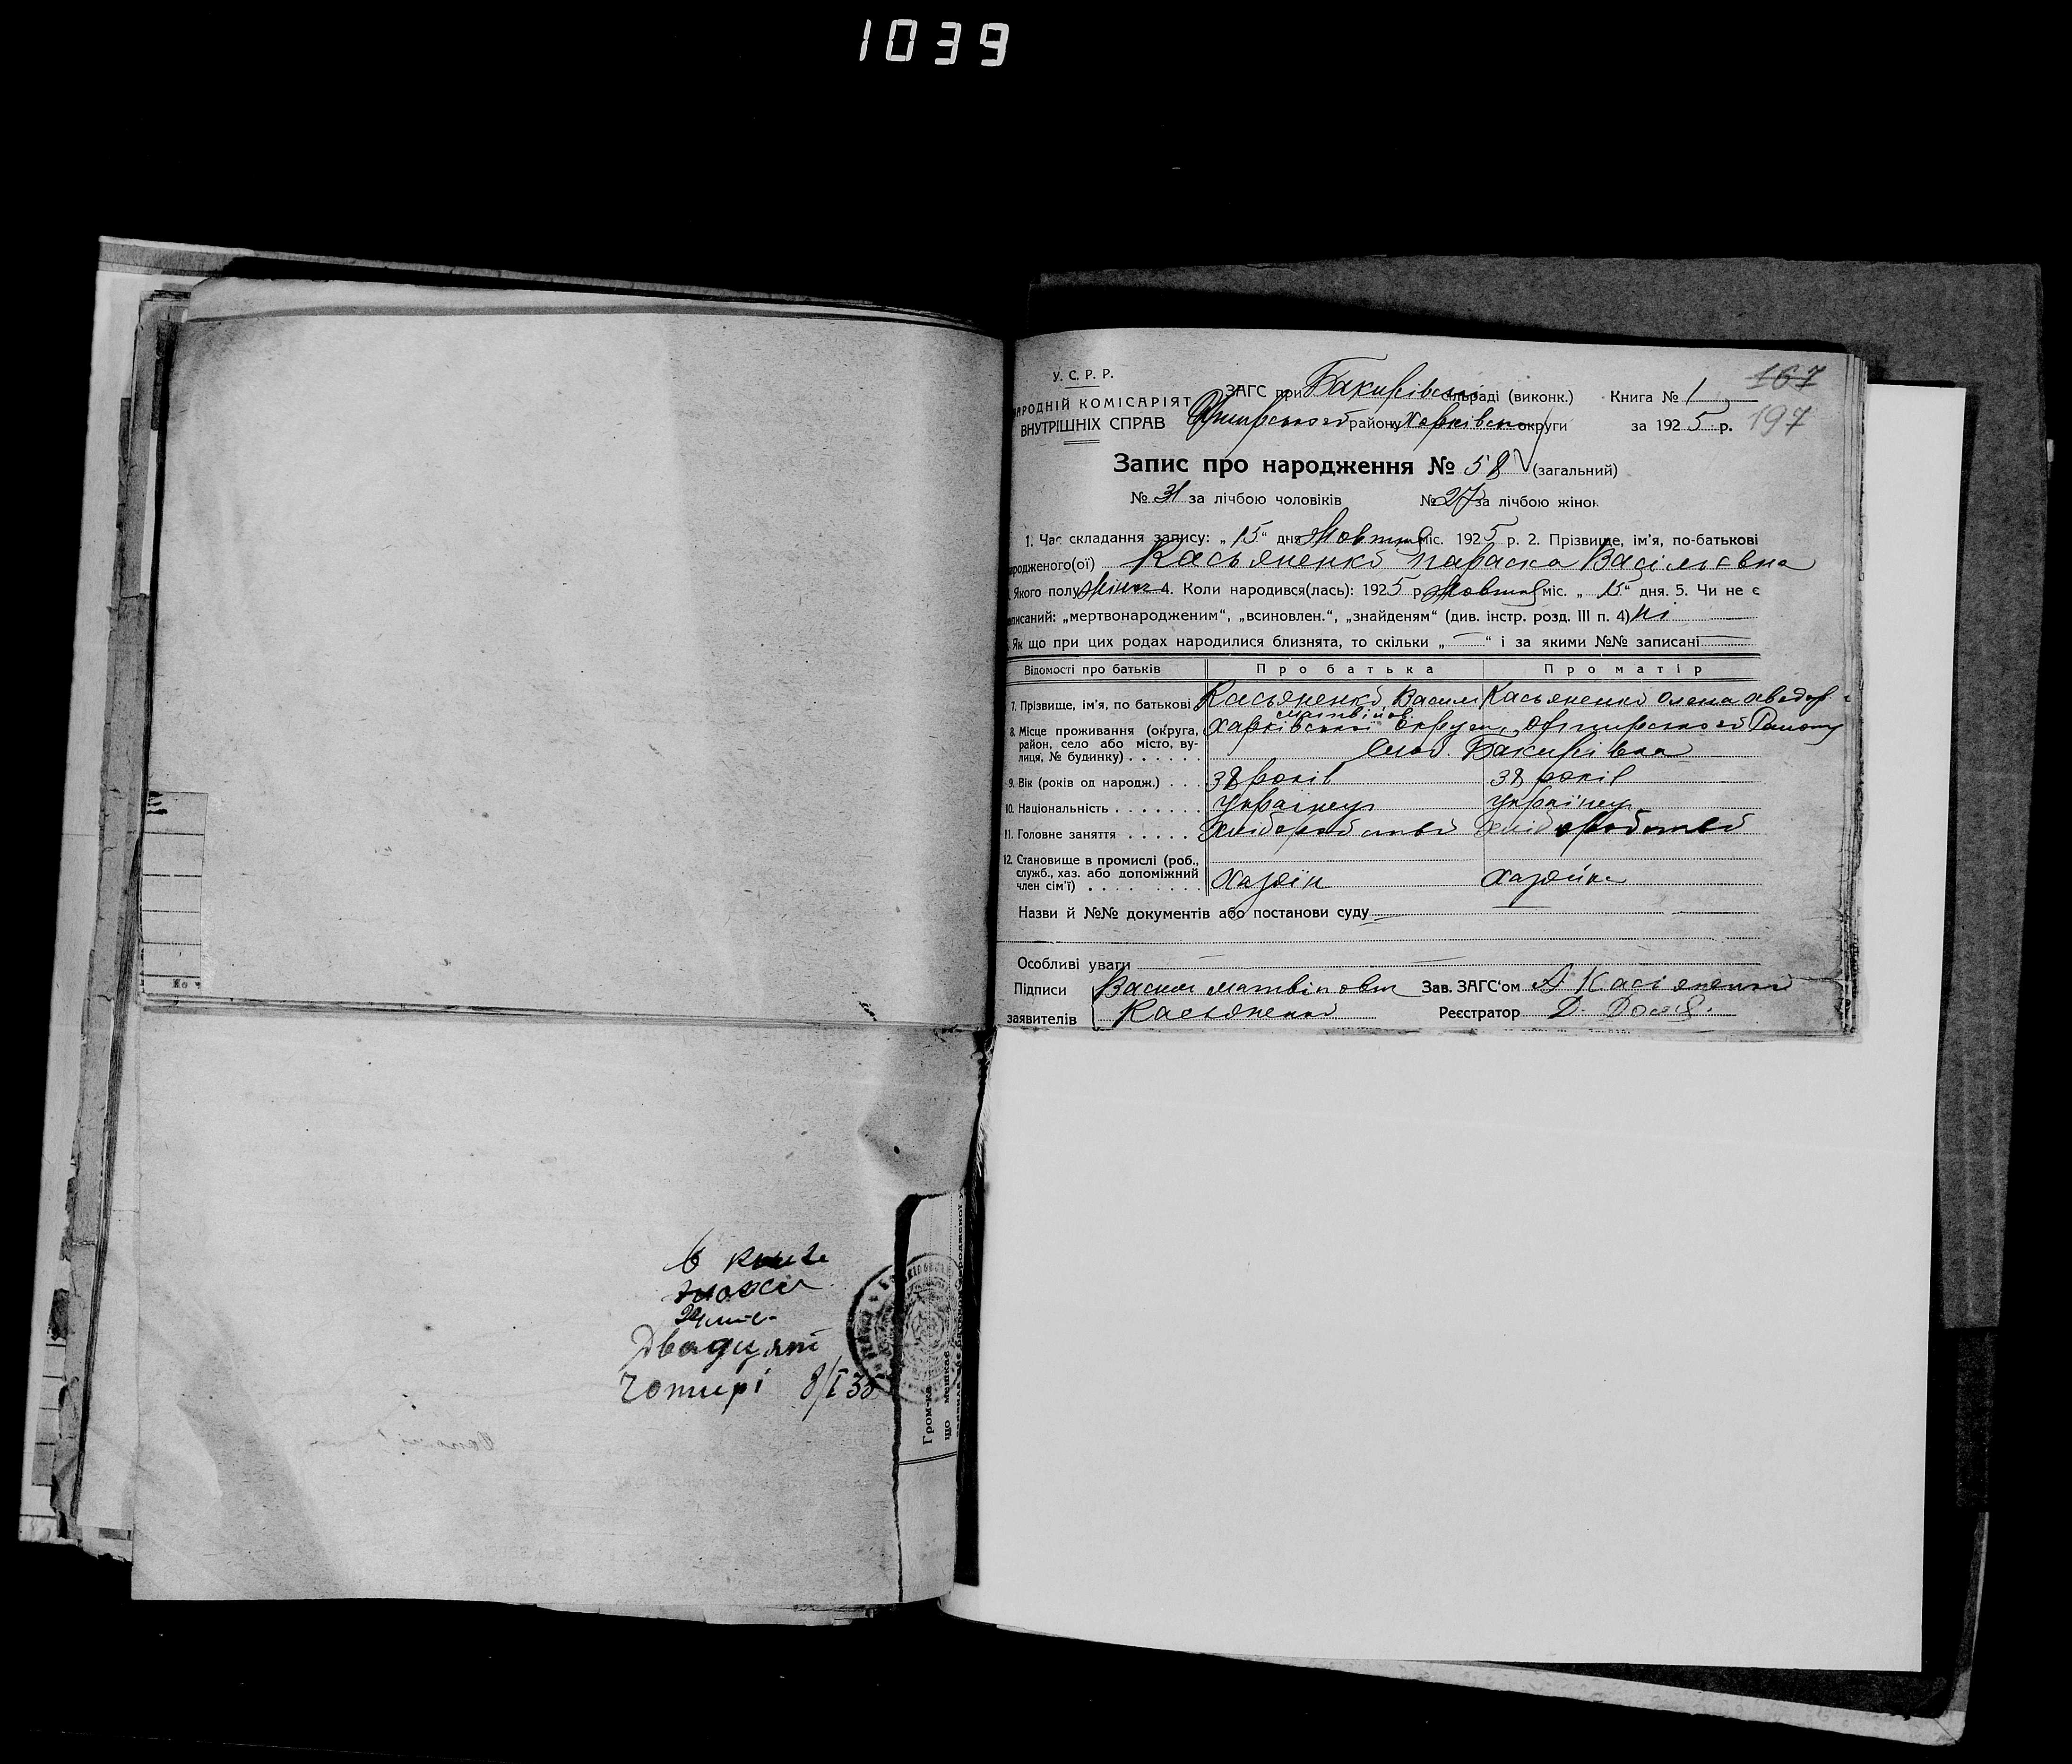 1039
в книзі
24 лист.
Двадцят
Чотирі 8/I 35
Гром-ка
що мешкає
167
197
У. С. Р. Р.
НАРОДНІЙ КОМІСАРІЯТ
ВНУТРІШНІХ СПРАВ
ЗАГС при Бакирівській сільраді (виконк.) Книга № 1
Охтирського району Харківської округи за 1925 р.
Запис про народження № 58 (загальний)
№ 31 за лічбою чоловіків № 27 за лічбою жінок
1. Час складання запису: „15“ дня Жовтня міс. 1925 р. 2. Прізвище, ім'я, по-батькові
народженого(ої) Касьяненко Параска Васільєвна
Якого полу Жіноч. 4. Коли народився(лась): 1925 р. Жовтня міс. „15“ дня. 5. Чи не є
записаний: „мертвонародженим“, „всиновлен.“, „знайденям“ (див. інстр. розд. III п. 4) Ні
Як що при цих родах народилися близнята, то скільки „—“ і за якими №№ записані —
Відомості про батьків Про батька Про матір
7. Прізвище, ім'я, по батькові Касьяненко Васил Матвійов. Касьяненко Олена
8. Місце проживання (округа, район, село або місто, вулиця, № будинку) Харківської округи, Охтирського Району
Слоб. Бакирівка
9. Вік (років од народж.) 38 років 38 років
10. Національність українец українец
11. Головне заняття Хліборобство Хліборобство
12. Становище в промислі (роб., служб., хаз. або допоміжний член сім'ї) Хазяїн Хазяйка
Назви й №№ документів або постанови суду —
Особливі уваги —
Підписи Васил Матвінович Зав. ЗАГС'ом А Касіяненко
заявителів Касьяненко Реєстратор Д.